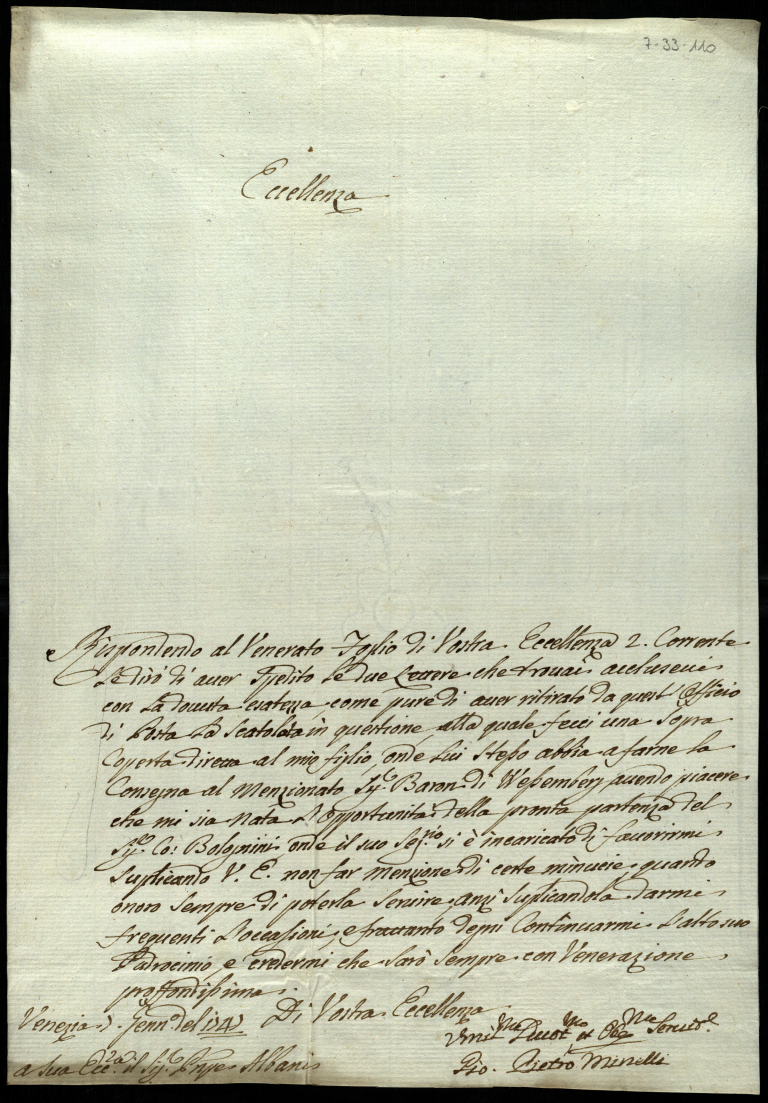 7-33-110
Eccellenza
Rispondendo al Venerato Foglio di Vostra Eccellenza 2. Corrente
Le dirò di aver spedito le due Lettere che trovai acclusevi
con la dovuta esatezza, come pure di aver ritirato da quest' Officio
di Posta la Scatoletta in questione, alla quale feci una Sopra
Coperta diretta al mio figlio, onde Lui Stesso abbia a farne la
Consegna al Menzionato Sig.r Baron di Wessemberg avendo piacere
che mi sia nata l'opportunità della pronta partenza del
Sig.r Co: Bolognini, onde il suo Seg.rio si è incaricato di favorirmi
Suplicando V. E. non far menzione di certe minucie, quando
onoro sempre di poterla Servire anzi Suplicandola darmi
frequenti l'occasioni, e frattanto degni Continuarmi l'alto suo
Padrocinio e credermi che sarò sempre con Venerazione
proffondissima
Di Vostra Eccellenza
Venezia Genn.o del
a Sua Ecc.za il Sig.r Pnpe Albani
Umil.mo Devot.mo et Obg.mo Servid.e
Gio. Pietro Minelli